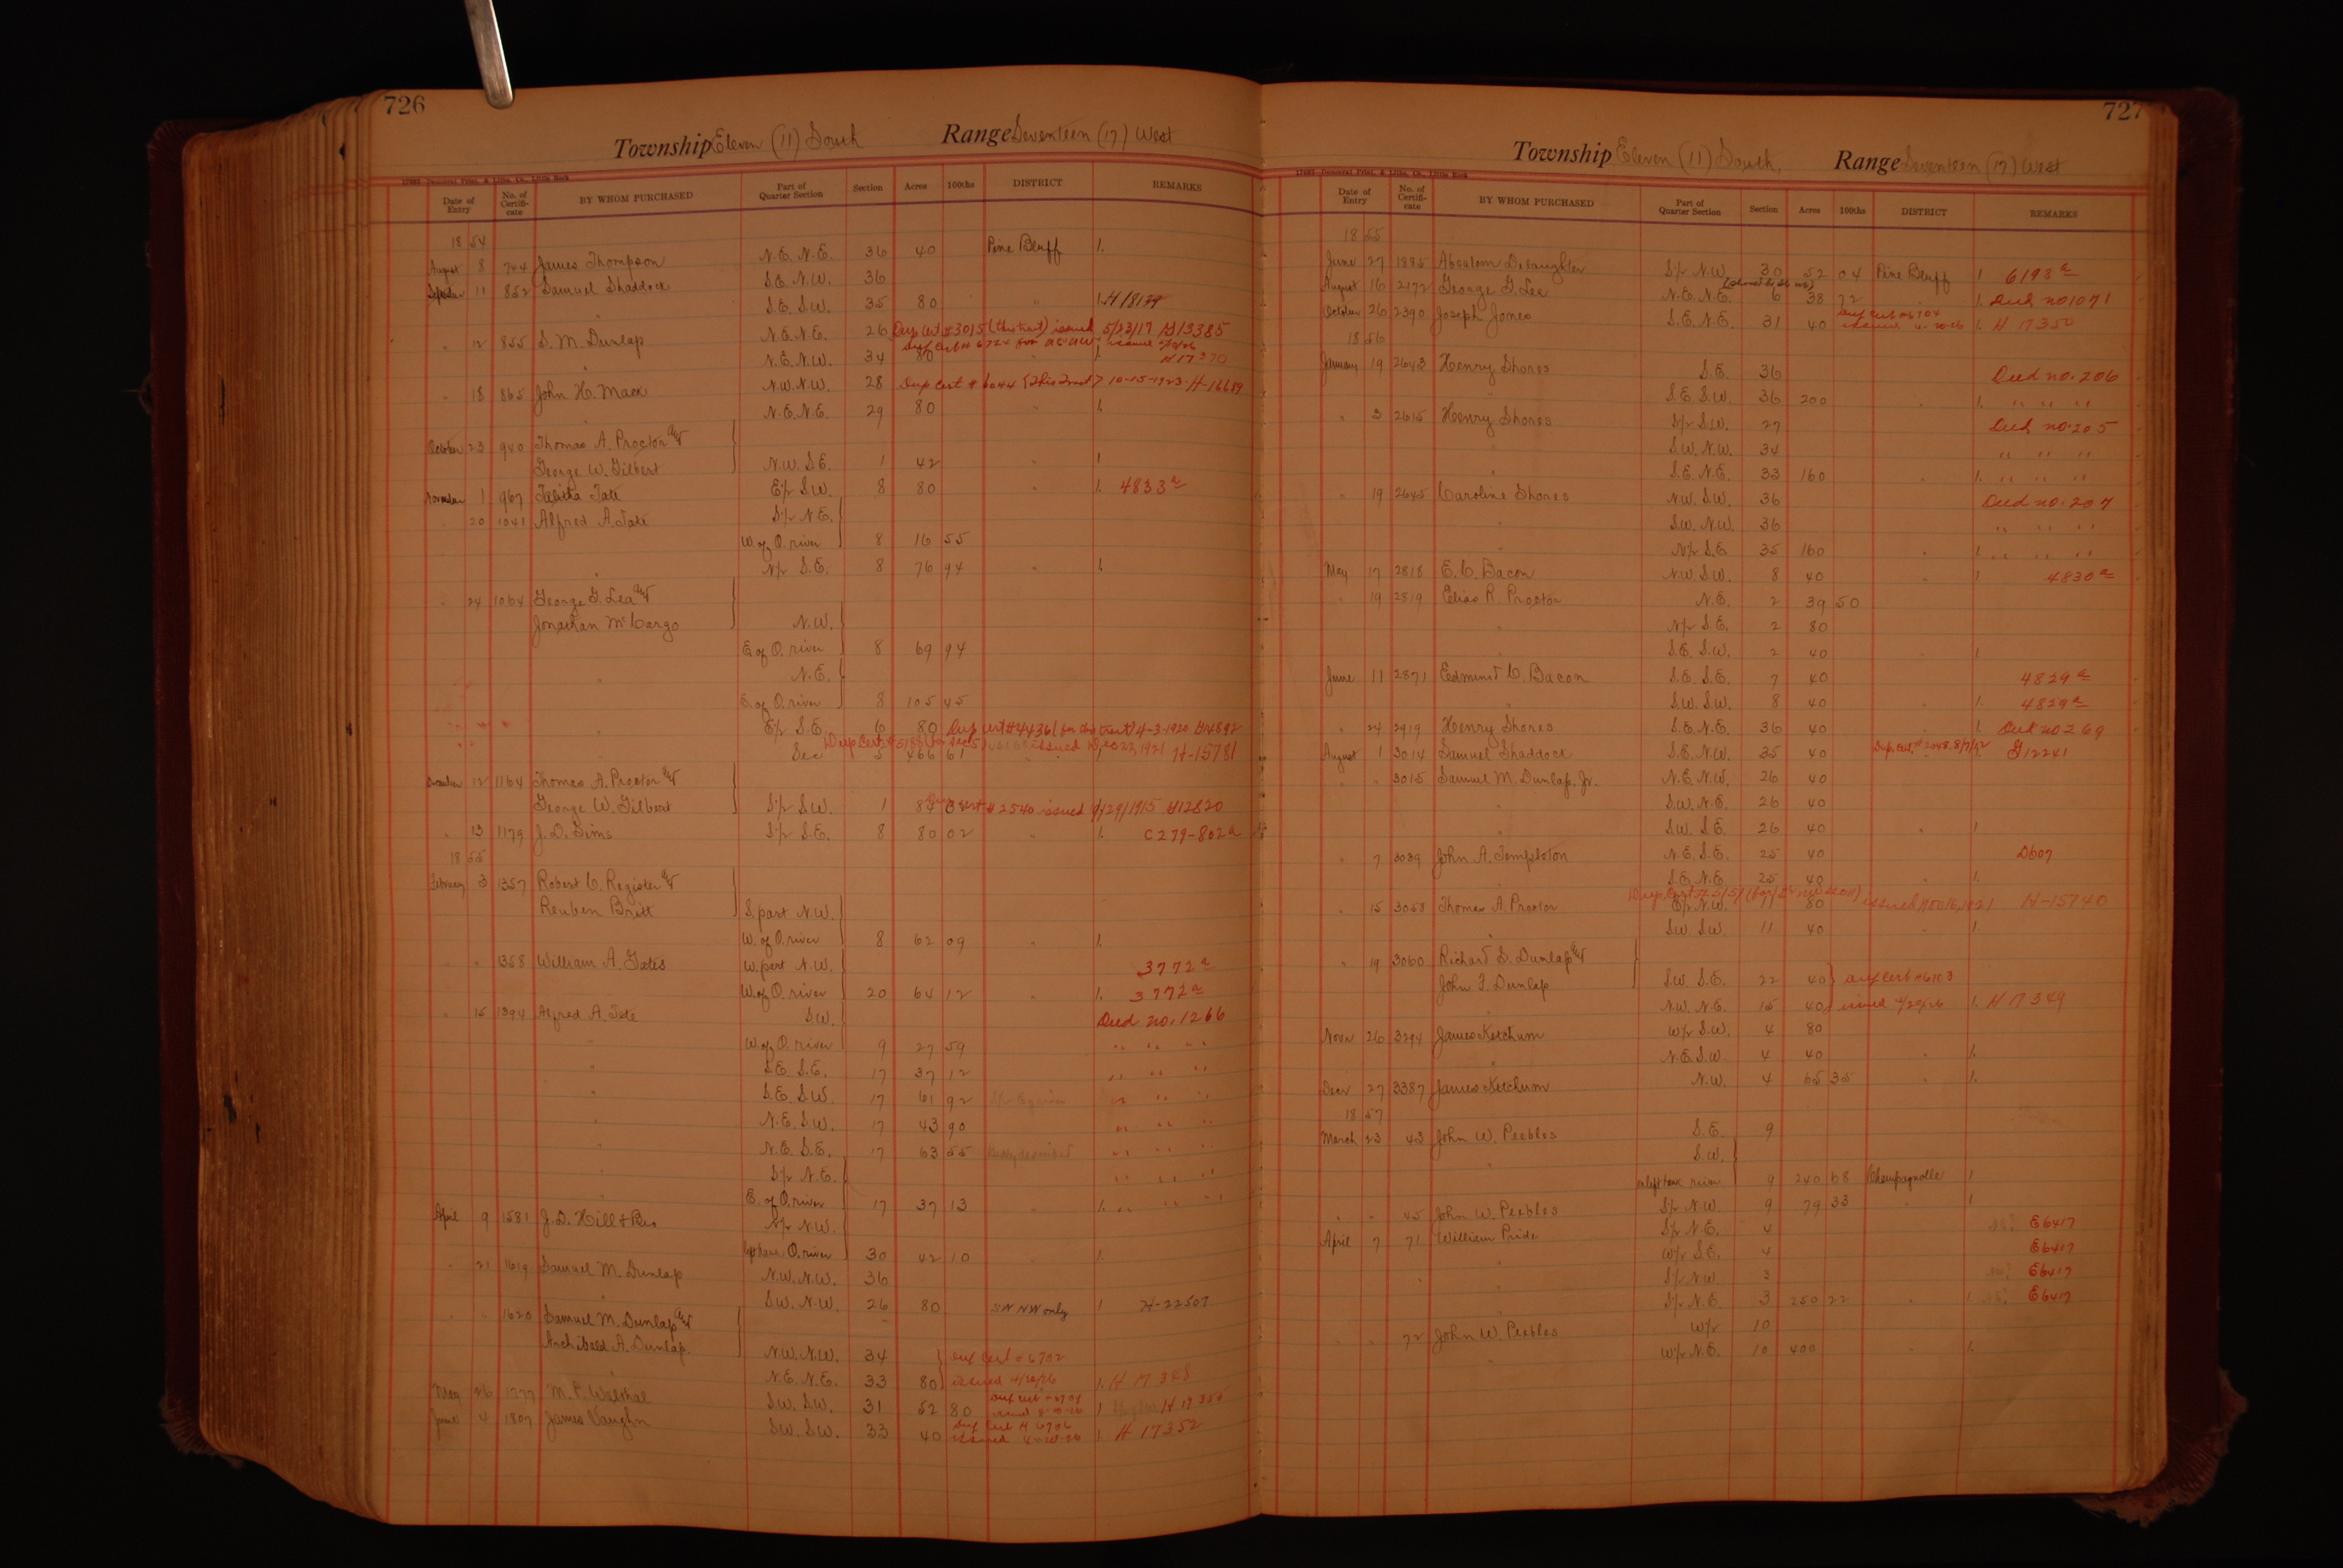 726
Township Eleven (11) South Range Seventeen (17) West
17683 Democrat Print. & Litho. Co., Little Rock
Date of Entry No. of Certifi-cate BY WHOM PURCHASED Part of Quarter Section Section Acres 100ths DISTRICT REMARKS
18 54
August 8 744 James Thompson N.E. N.E. 36 40 Pine Bluff 1.
September 11 852 Samuel Shaddock S.E. N.W. 36
" S.E. S.W. 35 80 " 1. H 18179
" 12 855 S. M. Dunlap N.E. N.E. 26 Dup Cert #3015 (this tract) issued 5/23/17 H13385
N.E. N.W. 34 80 1. H17370
" 18 865 John H. Mack N.W. N.W. 28 Dup Cert # 6044 (This Tract) 10-15-1923. H-16689
" N.E. N.E. 29 80 " 1.
October 23 940 Thomas A. Proctor and
George W. Gilbert N.W. S.E. 1 42 " 1
November 1 967 Talitha Tate E½ S.W. 8 80 " 1. 4833a
" 20 1041 Alfred A. Tate S½ N.E.
W. of O. river 8 16 55
" N½ S.E. 8 76 94 " 1.
" 24 1064 George G. Lea and
Jonathan McCargo N.W.
E of O. river 8 69 94
" N.E.
E. of O river 8 105 45
" E½ S.E. 6 80 Dup Cert #4436 (for this tract) 4-3-1920 H14892
Sec 5 466 61 Dup Cert # 5188 (for Sec 5) issued Dec 22, 1921 H-15781
December 12 1164 Thomas A. Proctor and
George W. Gilbert S½ S.W. 1 84 Dup Cert # 2540 issued 9/29/1915 H12820
" 13 1179 J. D. Sims S½ S.E. 8 80 02 " 1. C279-802a
18 55
February 3 1357 Robert C. Register and
Reuben Britt S. part N.W.
W. of O. river 8 62 09 " 1.
" " 1358 William A. Gates W. part N.W. 3772a
W. of O. river 20 64 12 " 1. 3772a
" 15 1394 Alfred A. Tate S.W. Deed no. 1266
" W. of O. river 9 27 59 " " "
" S.E. S.E. 17 37 12 " " "
" S.E. S.W. 17 61 92 " " "
" N.E. S.W. 17 43 90 " " "
" N.E. S.E. 17 63 55 " " "
" S½ N.E. " " "
" E. of O. river 17 37 13 " 1. " " "
April 9 1581 J. D. Hill & Bro N½ N.W.
left bank O. river 30 42 10 " 1.
" 21 1619 Samuel M. Dunlap N.W. N.W. 36
" S.W. N.W. 26 80 SW NW only 1 H-22507
" " 1620 Samuel M. Dunlap and
Archibald A. Dunlap N.W. N.W. 34 Dup Cert # 6702
" N.E. N.E. 33 80 issued 4/20/26 1. H 17348
May 26 1777 M. P. Walthal S.W. S.W. 31 52 80 1 H 17355
June 4 1807 James Vaughn S.W. S.W. 33 40 Dup Cert # 6706 issued 4-20-26 1. H 17352
727
Township Eleven (11) South, Range Seventeen (17) West
17683 Democrat Print. & Litho. Co., Little Rock
Date of Entry No. of Certifi-cate BY WHOM PURCHASED Part of Quarter Section Section Acres 100ths DISTRICT REMARKS
18 55
June 27 1885 Absalom Desaughter S½ N.W. 30 52 04 Pine Bluff 1 6198a
August 16 2172 George G. Lee N.E. N.E. 6 38 72 " 1. Deed no 1071
October 26 2390 Joseph Jones S.E. N.E. 31 40 Dup Cert #6704 issued 4-20-26 1. H 17350
18 56
January 19 2643 Henry Shores S.E. 36 Deed no. 206
" S.E. S.W. 36 200 " 1. " " "
" 3 2615 Henry Shores S½ S.W. 27 Deed no. 205
S.W. N.W. 34 " " "
" S.E. N.E. 33 160 " 1. " " "
" 19 2645 Caroline Shores N.W. S.W. 36 Deed no. 207
" S.W. N.W. 36 " " "
" N½ S.E. 35 160 " 1. " " "
May 17 2818 E. C. Bacon N.W. S.W. 8 40 " 1 4830a
" 19 2819 Elias R. Proctor N.E. 2 39 50
" N½ S.E. 2 80
" S.E. S.W. 2 40 " 1
June 11 2871 Edmund C. Bacon S.E. S.E. 7 40 4829a
" S.W. S.W. 8 40 " 1. 4829a
" 24 2919 Henry Shores S.E. N.E. 36 40 " 1. Deed no 269
August 1 3014 Samuel Shaddock S.E. N.W. 35 40 Dup. Cert. # 2048. 8/7/12 1. G12241
" " 3015 Samuel M. Dunlap, Jr. N.E. N.W. 26 40
" S.W. N.E. 26 40
" S.W. S.E. 26 40 " 1
" 7 3039 John A. Templeton N.E. S.E. 25 40 D607
S.E. N.E. 25 40 1.
" 15 3058 Thomas A. Proctor E½ N.W. 11 80 H-15740
" S.W. S.W. 11 40 " 1
" 19 3060 Richard S. Dunlap and
John F. Dunlap S.W. S.E. 22 40 Dup Cert #6703
" N.W. N.E. 15 40 issued 4/20/26 1. H 17349
Novr 26 3294 James Ketchum W½ S.W. 4 80
" N.E. S.W. 4 40 " 1.
Decr 27 3387 James Ketchum N.W. 4 65 35 " 1.
18 57
March 23 43 John W. Peebles S.E. 9
" S.W.
on left bank river 9 240 68 Champagnolle 1
" " 45 John W. Peebles S½ N.W. 9 79 33 " 1
April 7 71 William Pride S½ N.E. 4 E6417
" W½ S.E. 4 E6417
" S½ N.W. 3 E6417
" S½ N.E. 3 250 22 " 1 E6417
" " 72 John W. Peebles W½ 10
" W½ N.E. 10 400 " 1.